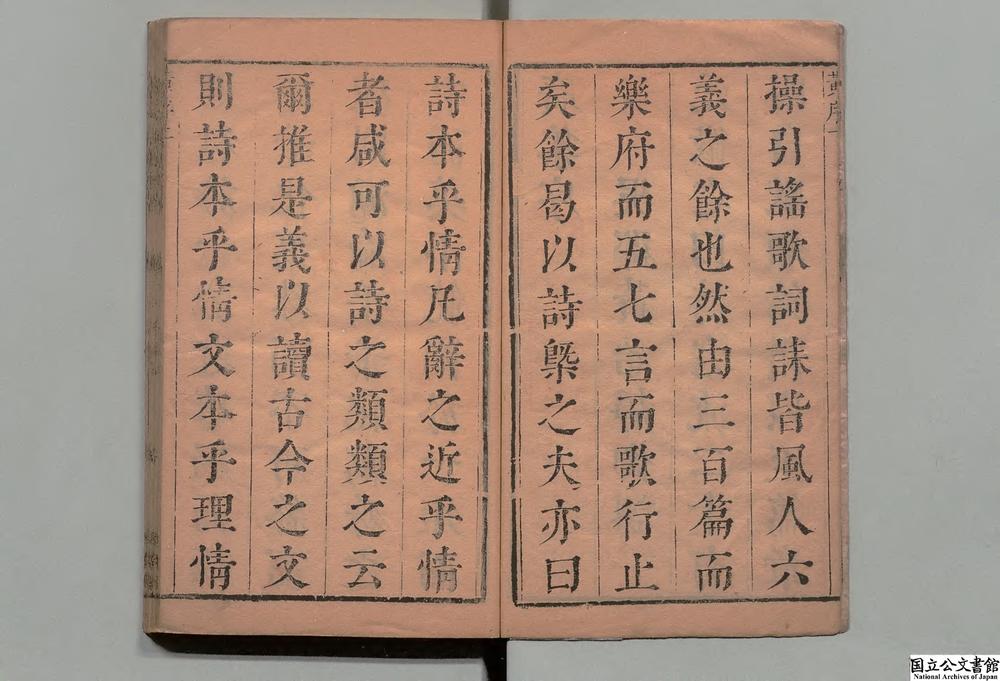 操引謠歌詞誄皆風人六
義之餘也然由三百篇而
樂府而五七言而歌行止
矣餘曷以詩槩之夫亦曰
詩本乎情凡辭之近乎情
者咸可以詩之類類之云
爾推是義以讀古今之文
則詩本乎情文本乎理情
国立公文書館
National Archives of Japan